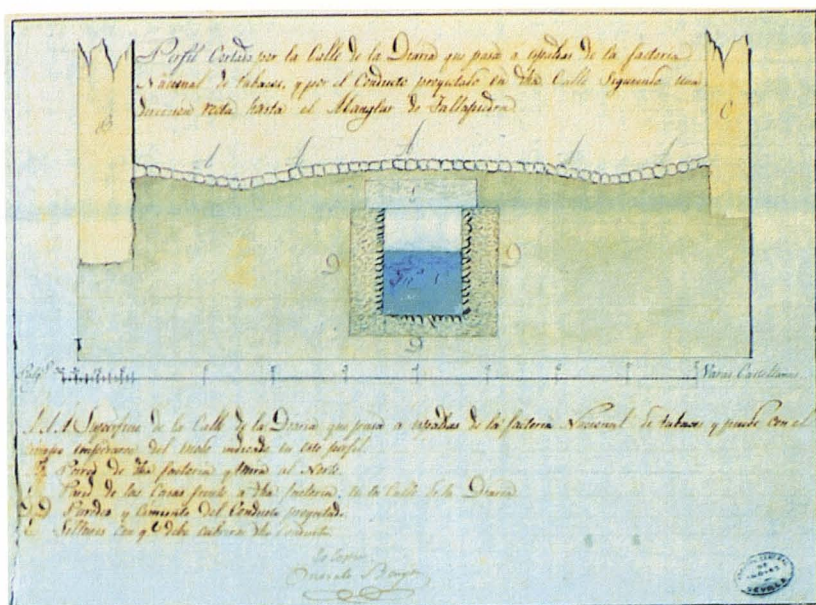 Perfil Cortado por la Calle de la Diaria que pasa a espaldas de la factoria
Nacional de tabacos, y por el Conducto proyectado en dha Calle Siguiendo una
direccion recta hasta el Manglar de Tallapiedra
B
C
A A A A A
E
D D
D
Varas Castellanas
A.A.A Superficie de la Calle de la Diaria que pasa a espaldas de la factoria Nacional de tabacos y puede con el
tiempo del modo indicado en este perfil.
B. Pared de dha factoria y Mira al Norte.
C. Pared de las Casas frente a dha factoria, en la Calle de la Diaria
D D Paredes y Cimiento del Conducto proyectado.
E Sillares con q.e debe cubrirse dho Conducto
ARCHIVO GENERAL
DE
INDIAS
SEVILLA